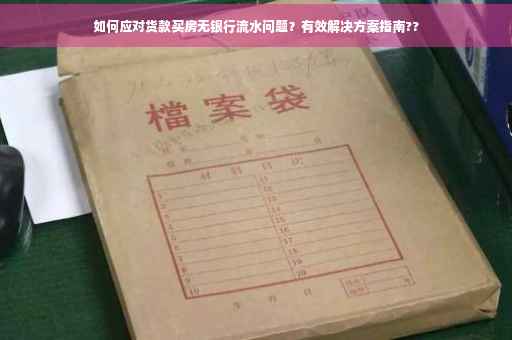 如何应对货款买房无银行流水问题？有效解决方案指南??
檔案袋
材料目次
1 11
2 12
3 13
4 14
5 15
6 16
7 17
8 18
9 19
10 20
年 月 日